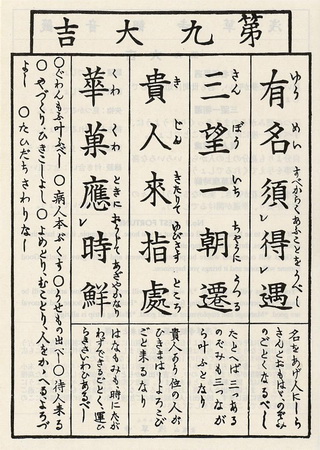 第九大吉
有名須得遇
ゆうめいすべからくあふことをうべし
名をあげ人にしら
さんとおもはゞその
のごとくなるべし
三望一朝遷
さんぼういちちようにうつる
たとへば三つある
のぞみも三つなが
ら叶ふとなり
貴人來指處
きじんきたりてゆびさすところ
貴人あり位の人が
ひきまはしよろこび
ごと来るなり
華菓應時鮮
くわくわときにおうじてあざやかなり
はなもみも、時にたが
わずできるごとく、運ひ
らきさいわひあるべし
○ぐわんもふ叶ふべし ○病人本ぷくす ○うせもの出べし ○待人来る
○やづくり、ひきこしよし、○よめとり、むことり、人をかゝへるよろづ
よし ○たびだちさわりなし